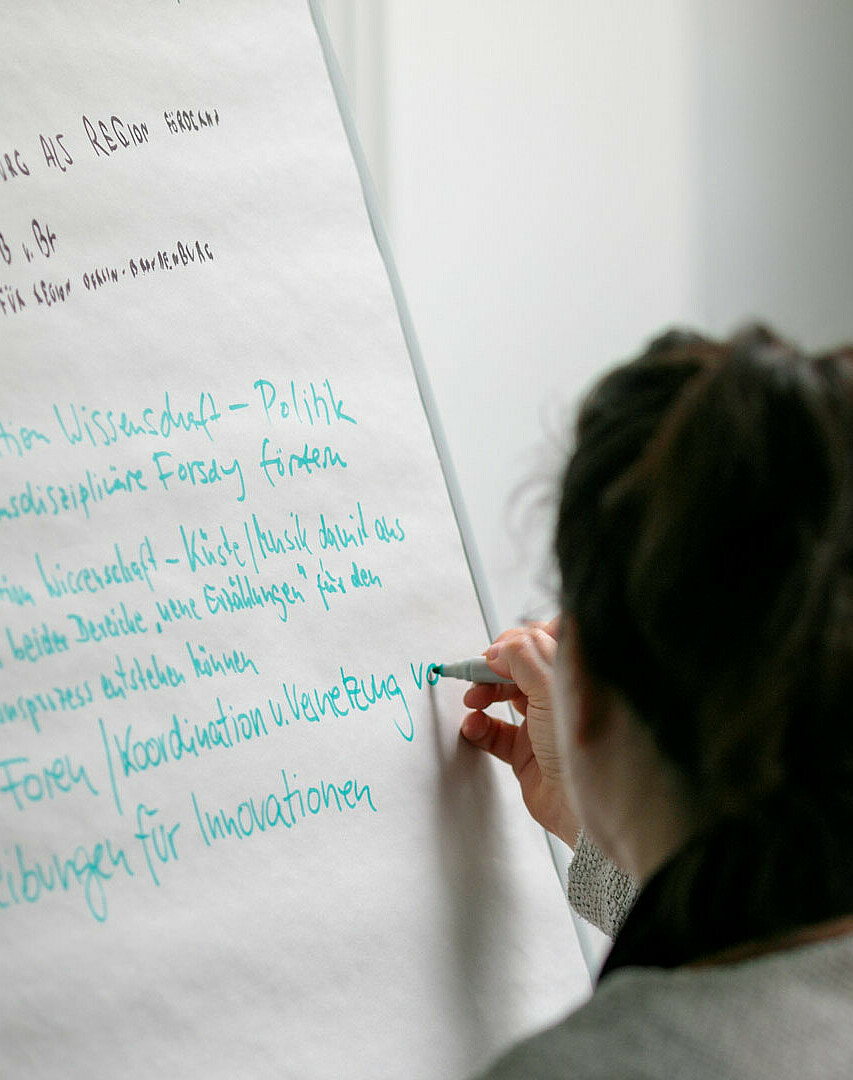 URG ALS REGION FÖRDERN
B u. BR
FÜR REGION BERLIN-BRANDENBURG
tion Wissenschaft – Politik
nsdisziplinäre Forschg fördern
tion Wissenschaft – Künste/Musik damit aus
beider Bereiche „neue Erzählungen" für den
onsprozess entstehen können
Foren / Koordination u. Vernetzung vo
eibungen für Innovationen